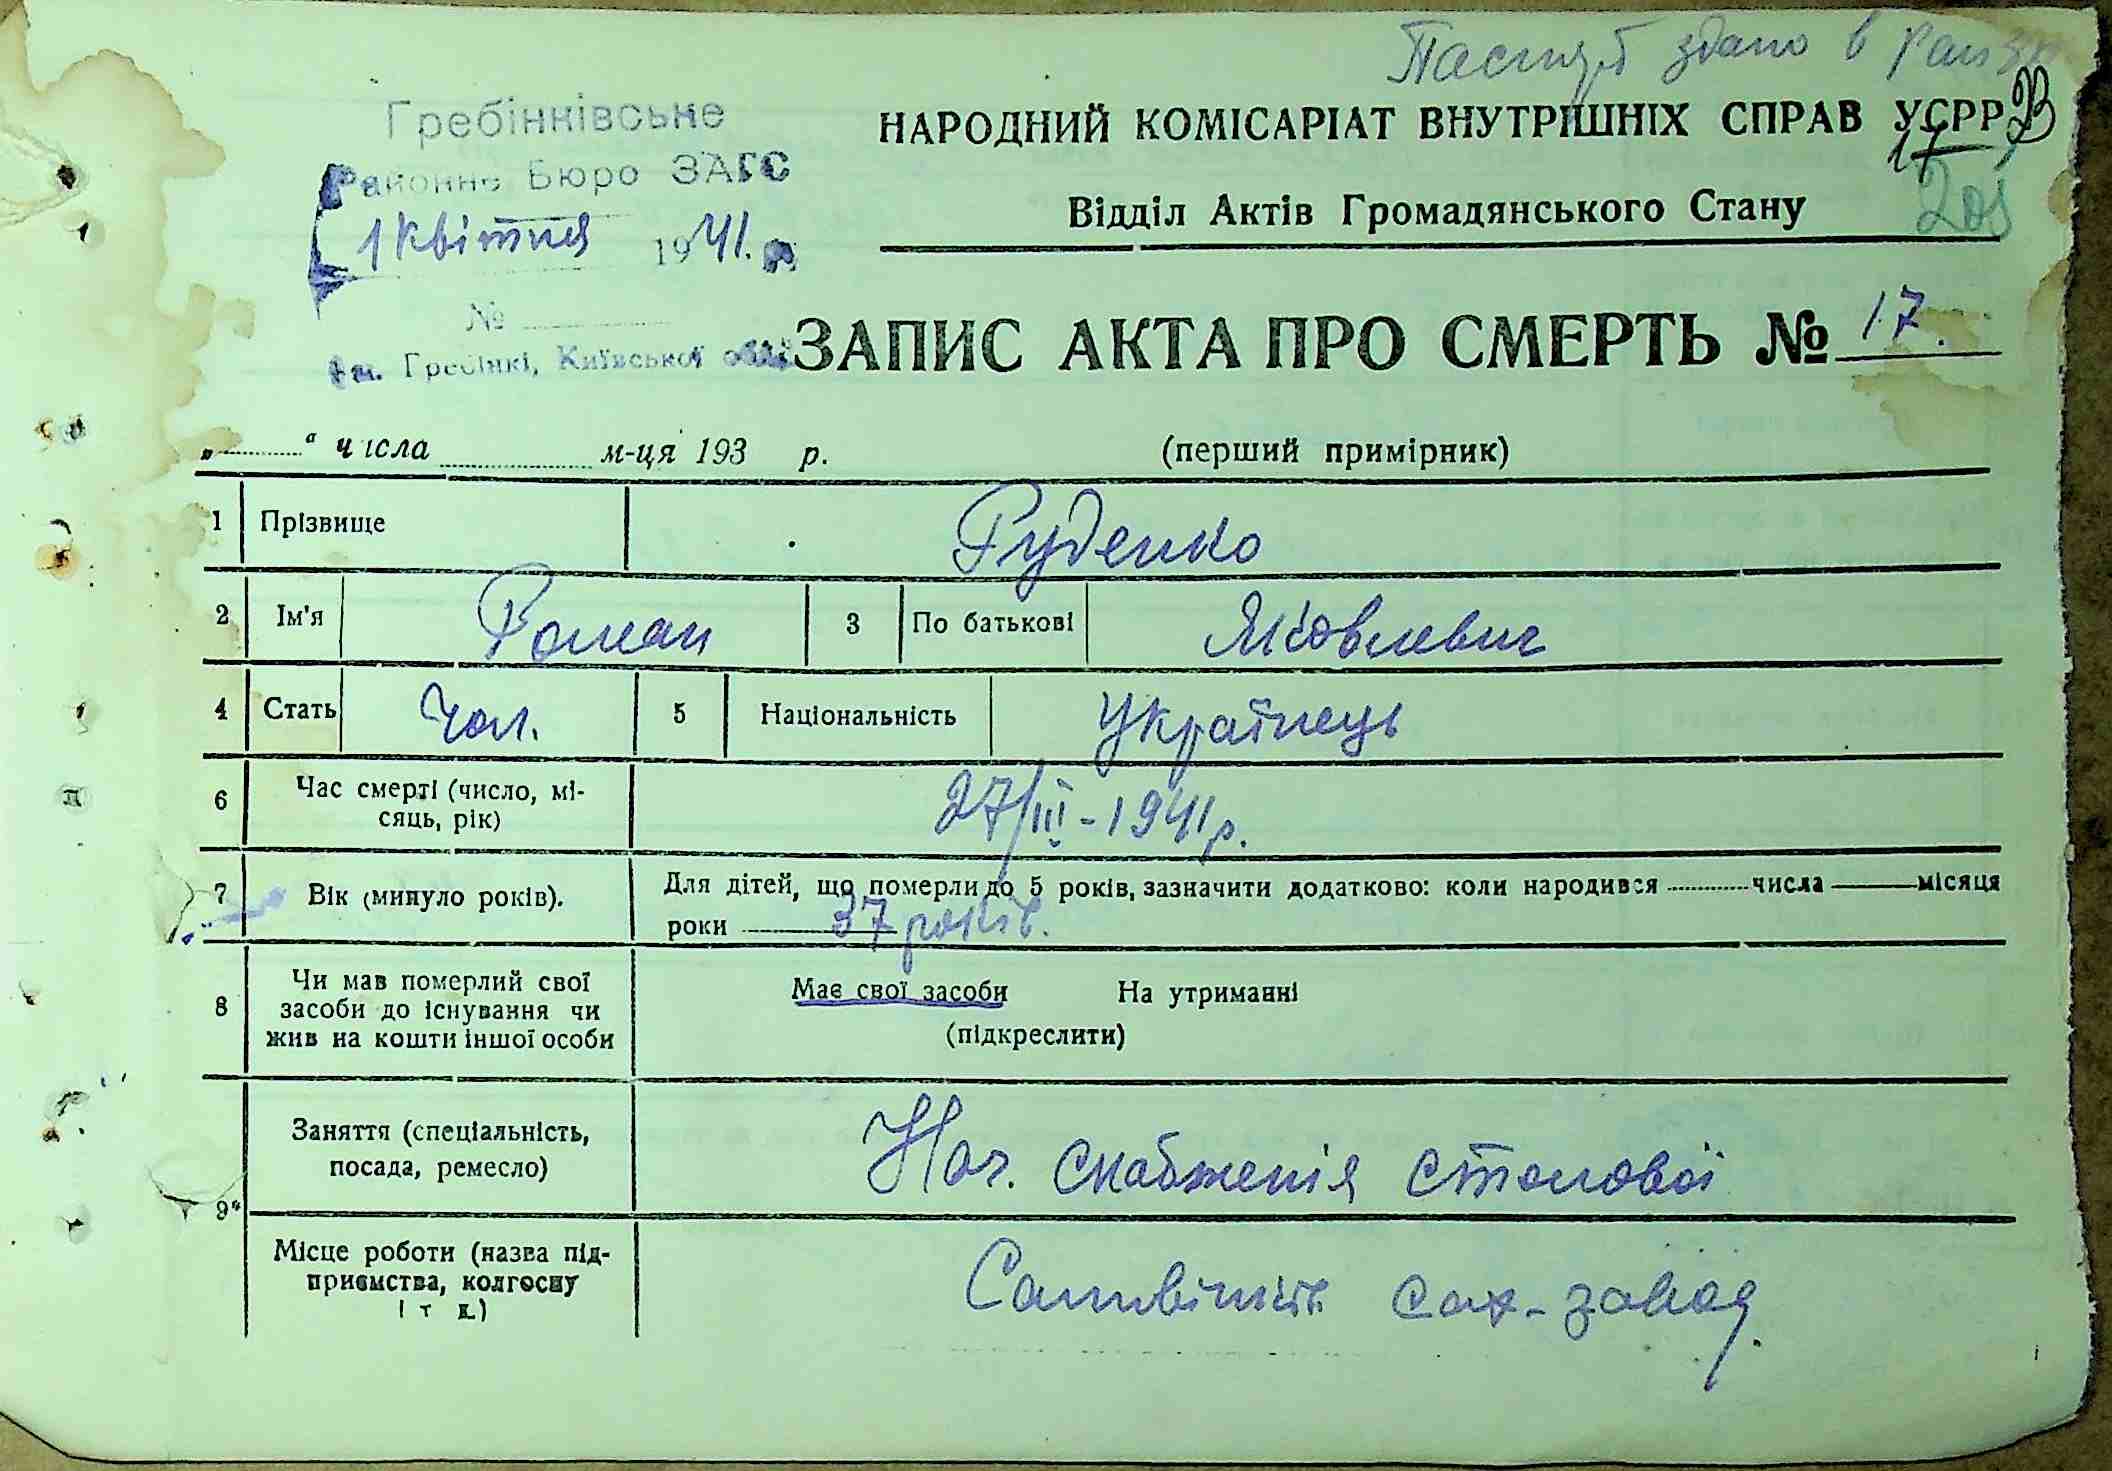 Паспорт здано в
Гребінківське
Районне Бюро ЗАГС
1 квітня 1941 р.
№
м. Гребінкі, Київської обл.
НАРОДНИЙ КОМІСАРІАТ ВНУТРІШНІХ СПРАВ УСРР
17
Відділ Актів Громадянського Стану
ЗАПИС АКТА ПРО СМЕРТЬ № 17.
„ “ числа м-ця 193 р. (перший примірник)
1 Прізвище Руденко
2 Ім'я Роман 3 По батькові Яковлевич
4 Стать Чол. 5 Національність Українець
6 Час смерті (число, мі-
сяць, рік) 27/III-1941р.
7 Вік (минуло років). Для дітей, що померли до 5 років, зазначити додатково: коли народився числа місяця
роки 37 років.
8 Чи мав померлий свої
засоби до існування чи
жив на кошти іншої особи
Має свої засоби На утриманні
(підкреслити)
9 Заняття (спеціальність,
посада, ремесло) Нач. снабженія столової
Місце роботи (назва під-
приємства, колгоспу
і т д.) сах-завод.